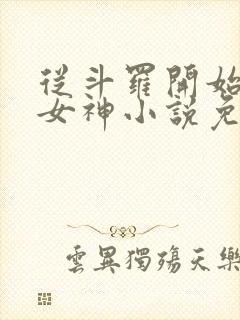 從斗羅開始
女神小說免
雲異獨殤天樂